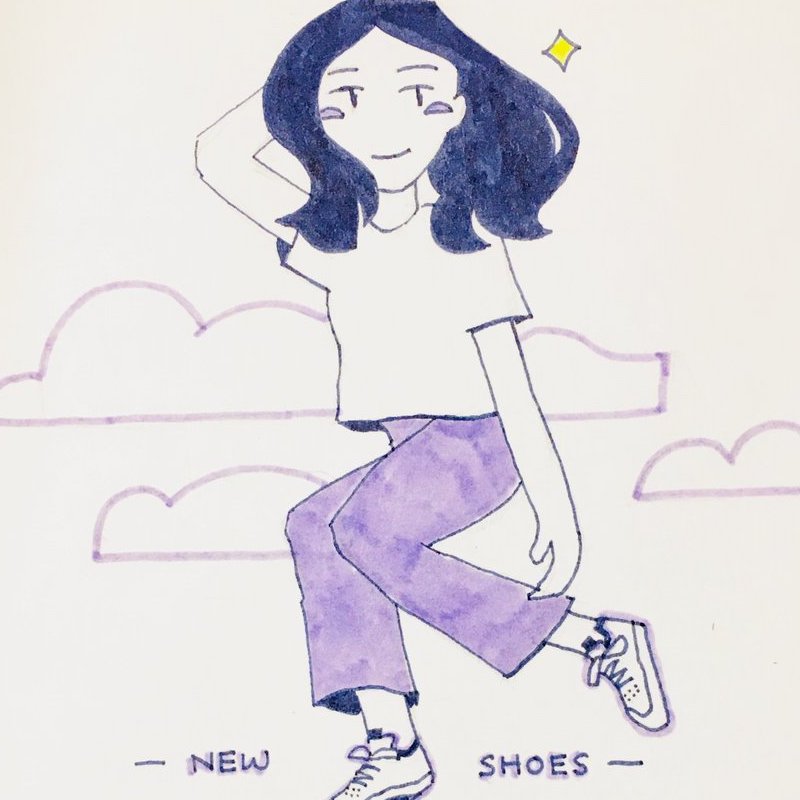 — NEW SHOES —